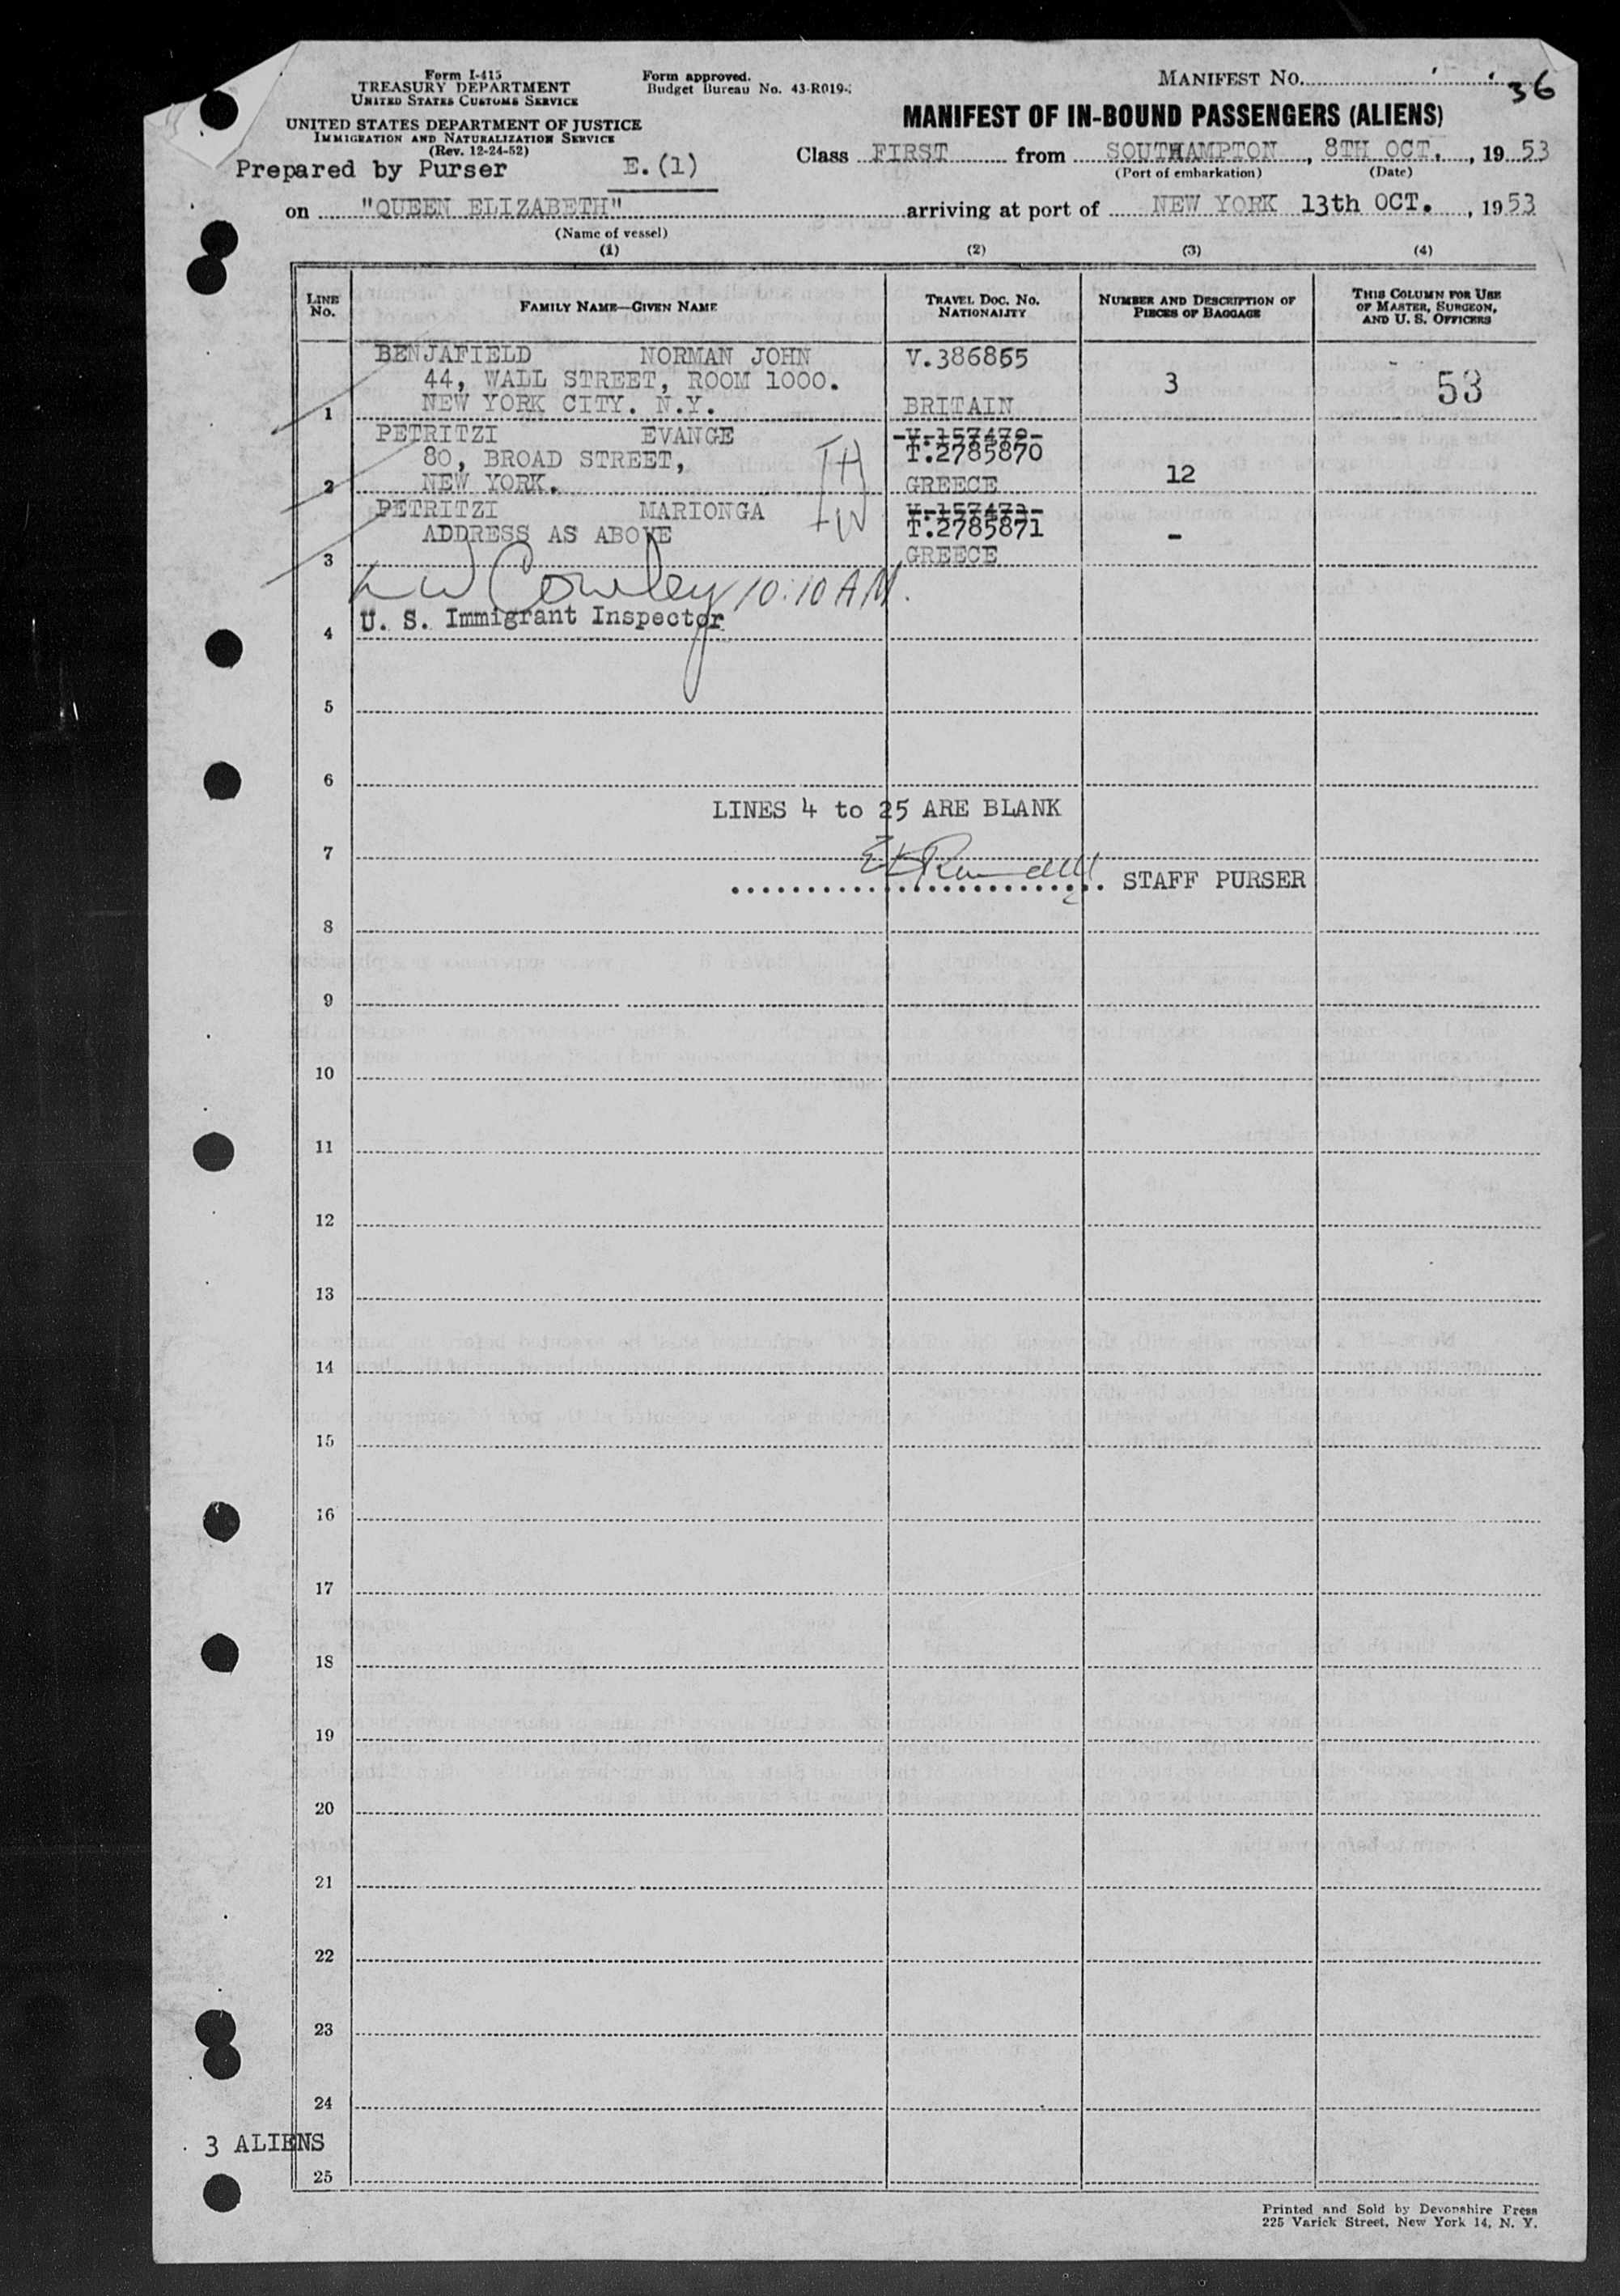 Form I-415
TREASURY DEPARTMENT
UNITED STATES CUSTOMS SERVICE
UNITED STATES DEPARTMENT OF JUSTICE
IMMIGRATION AND NATURALIZATION SERVICE
(Rev. 12-24-52)
Prepared by Purser E.(1)
Form approved.
Budget Bureau No. 43-R019-
MANIFEST NO. 36
MANIFEST OF IN-BOUND PASSENGERS (ALIENS)
Class FIRST from SOUTHAMPTON, 8TH OCT., 1953
(Port of embarkation) (Date)
on "QUEEN ELIZABETH" arriving at port of NEW YORK 13th OCT., 1953
(Name of vessel)
(1) (2) (3) (4)
LINE NO. FAMILY NAME—GIVEN NAME TRAVEL DOC. NO. NATIONALITY NUMBER AND DESCRIPTION OF PIECES OF BAGGAGE THIS COLUMN FOR USE OF MASTER, SURGEON, AND U. S. OFFICERS
BENJAFIELD NORMAN JOHN V.386865
44, WALL STREET, ROOM 1000. 3 53
1 NEW YORK CITY. N.Y. BRITAIN
PETRITZI EVANGE
80, BROAD STREET, T.2785870
2 NEW YORK. GREECE 12
PETRITZI MARIONGA
ADDRESS AS ABOVE T.2785871 -
3 GREECE
L W Cowley 10:10 AM.
U. S. Immigrant Inspector
4
5
6
LINES 4 to 25 ARE BLANK
7
STAFF PURSER
8
9
10
11
12
13
14
15
16
17
18
19
20
21
22
23
24
3 ALIENS
25
Printed and Sold by Devonshire Press
225 Varick Street, New York 14, N. Y.